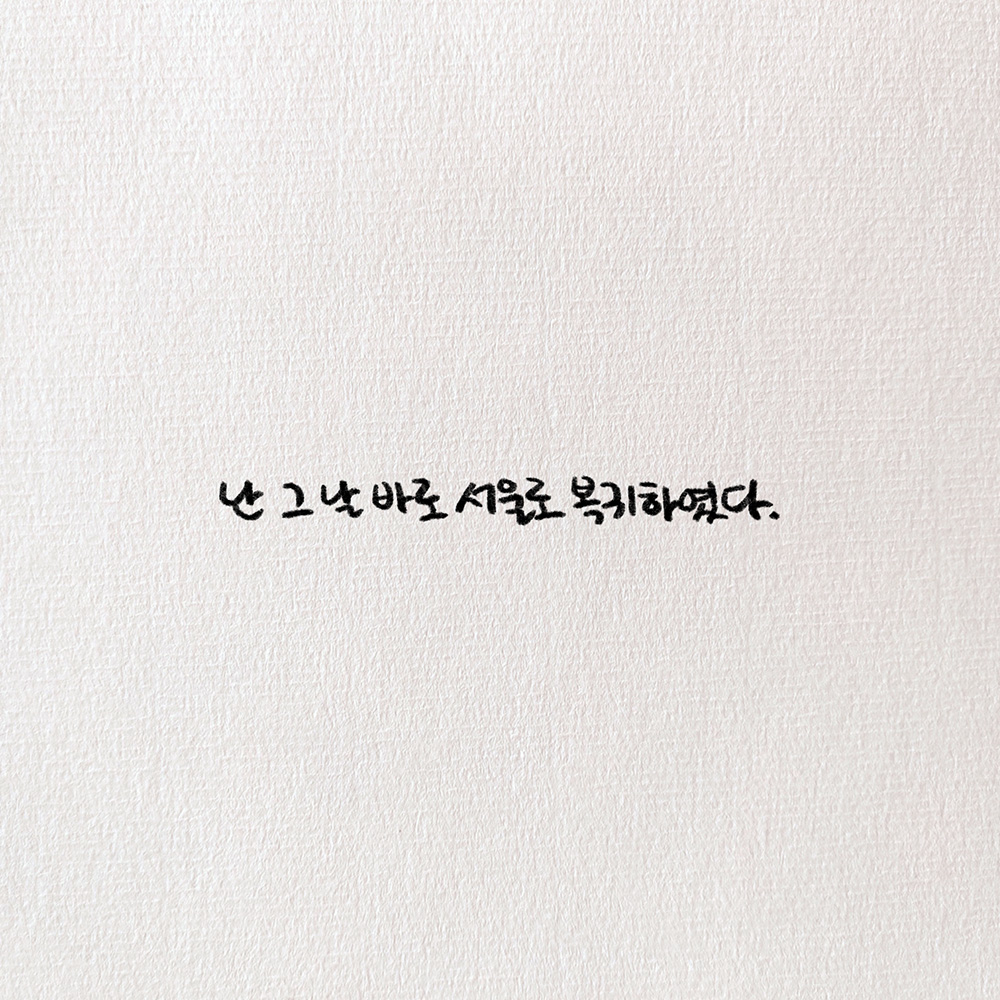 난 그 날 바로 서울로 복귀하였다.